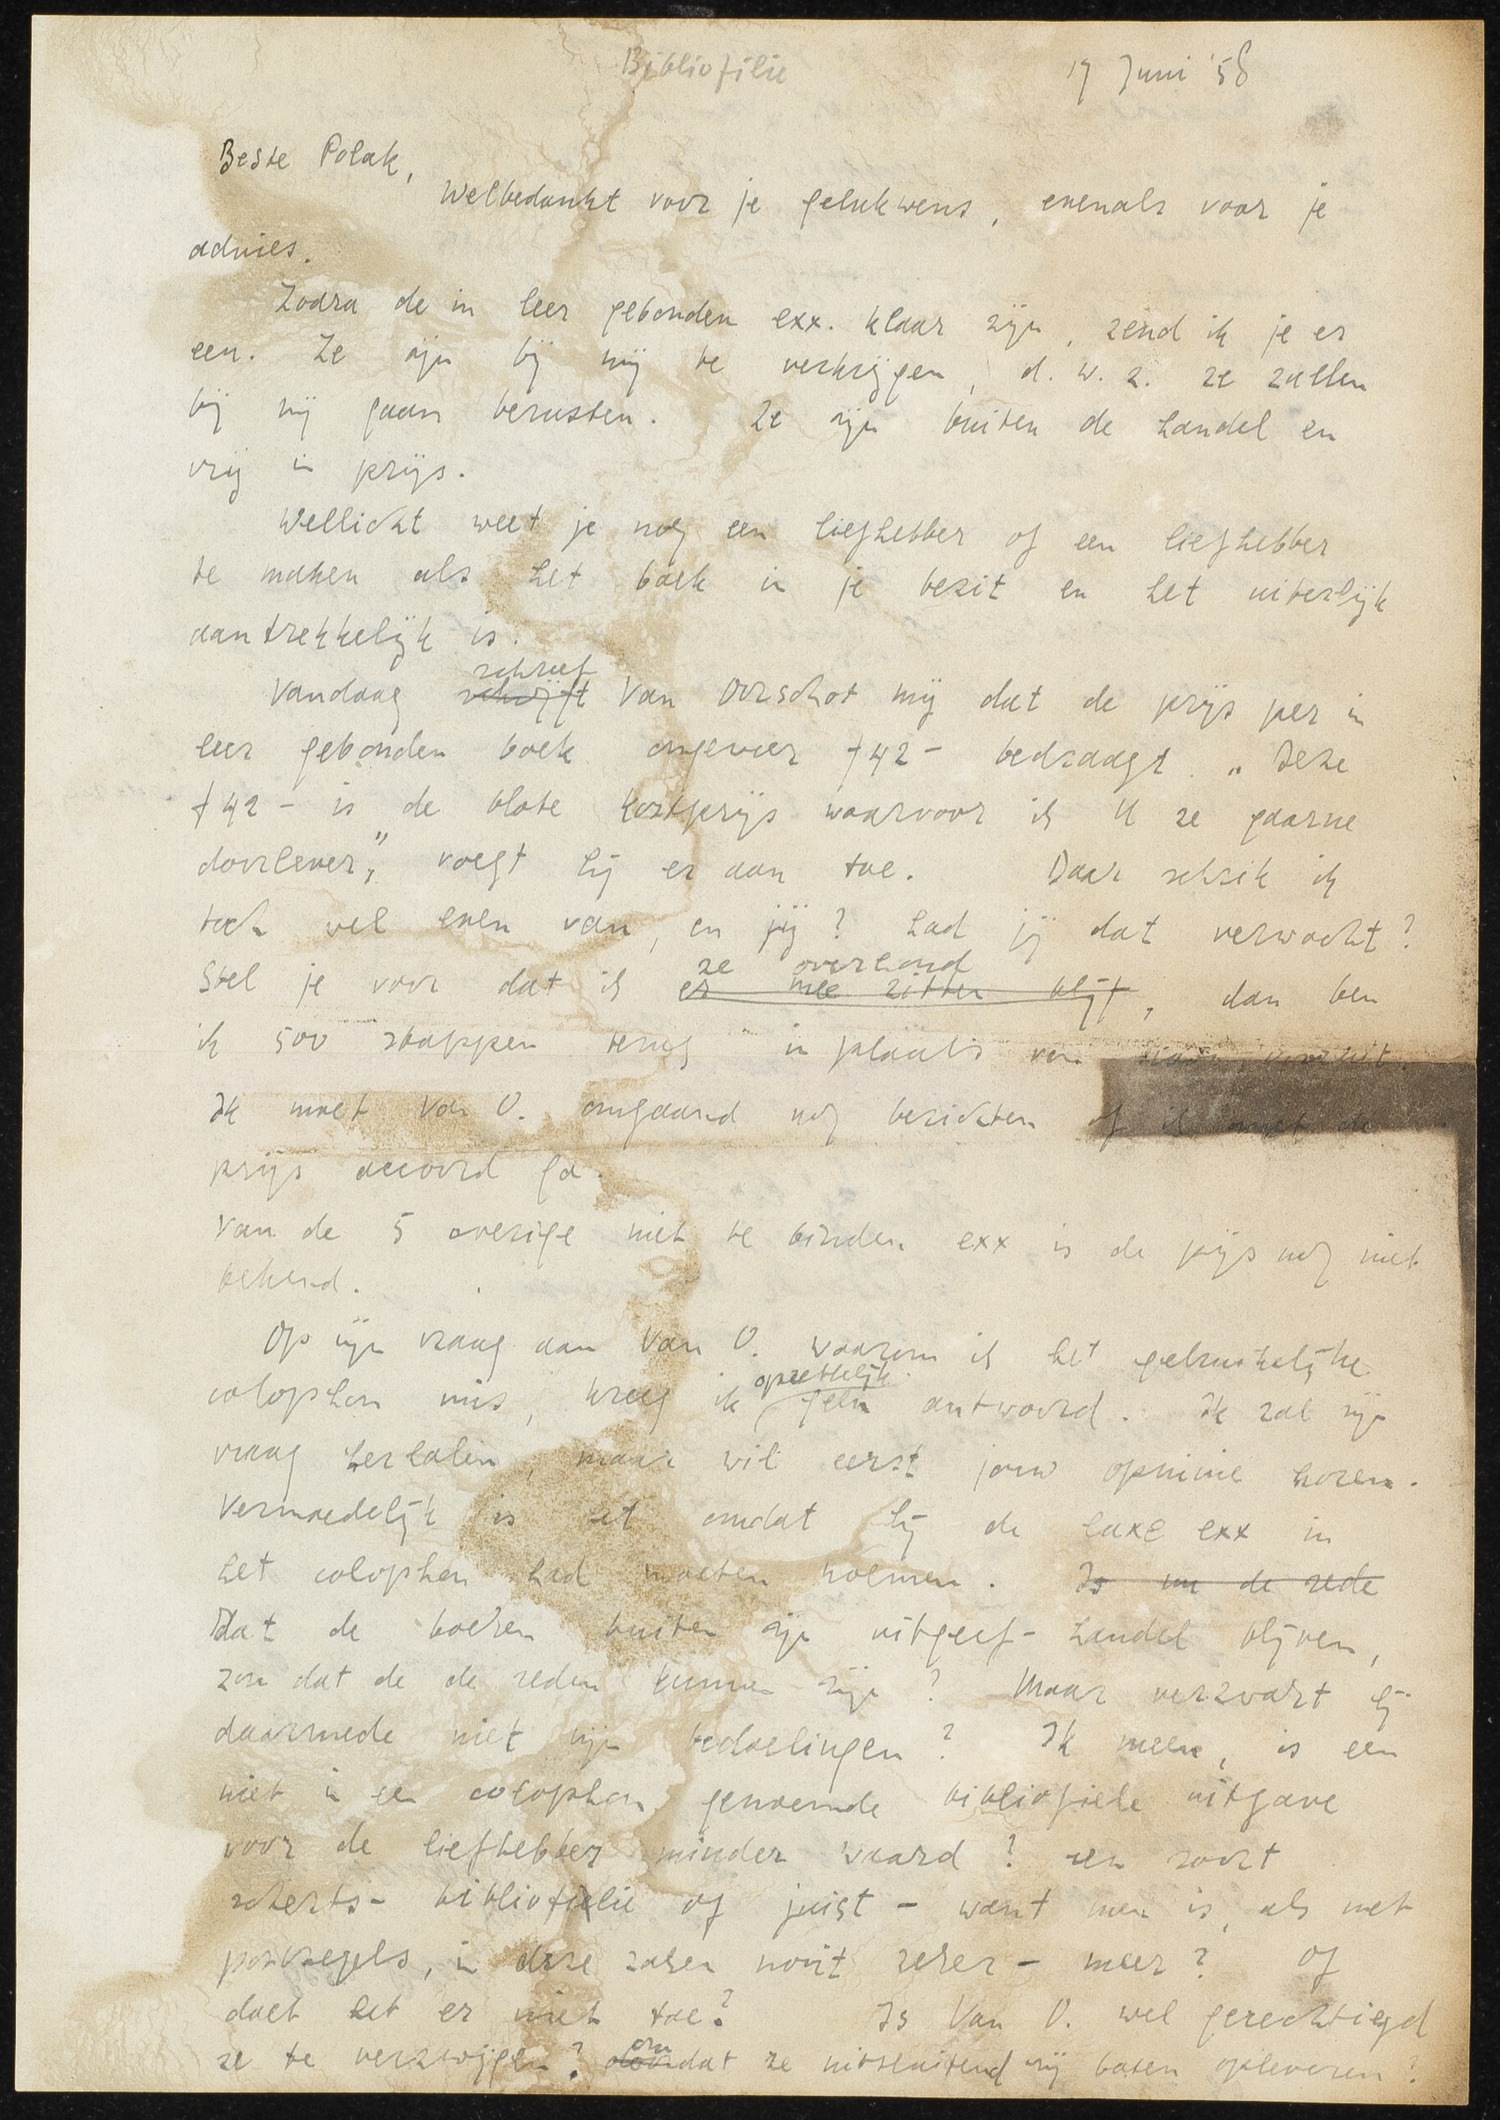 Bibliofilie
17 Juni '58
Beste Polak,
Welbedankt voor je gelukwens, evenals voor je
advies.
Zodra de in leer gebonden exx. klaar zijn, zend ik je er
een. Ze zijn bij mij te verkrijgen, d.w.z. ze zullen
bij mij gaan berusten. Ze zijn buiten de handel en
vrij in prijs.
Wellicht weet je nog een liefhebber of een liefhebber
te maken als het boek in je bezit en het uiterlijk
aantrekkelijk is.
schreef
Vandaag schrijft Van Oorschot mij dat de prijs per in
leer gebonden boek ongeveer ƒ42- bedraagt. „Deze
ƒ42- is de blote kostprijs waarvoor ik U ze gaarne
doorlever", voegt hij er aan toe. Daar schrik ik
toch wel even van, en jij? Had jij dat verwacht?
ze overhoud
Stel je voor dat ik er mee zitten blijf, dan ben
ik 500 stappen terug in plaats van
Ik moet Van O. omgaand nog berichten of ik met de
prijs accoord ga.
Van de 5 overige niet te binden exx is de prijs nog niet
bekend.
Op mijn vraag aan Van O. waarom ik het gebruikelijke
opzettelijk
colophon mis, kreeg ik geen antwoord. Ik zal mijn
vraag herhalen, maar wil eerst jouw opinie horen.
Vermoedelijk is het omdat hij de luxe exx in
het colophon had moeten noemen. Is nu de rede
Dat de boeken buiten zijn uitgeef-handel blijven,
zou dat de de reden kunnen zijn? Maar verzwart hij
daarmede niet mijn bedoelingen? Ik meen, is een
niet in een colophon genoemde bibliofiele uitgave
voor de liefhebber minder waard? een soort
scherts-bibliofilie of juist - want men is, als met
postzegels, in deze zaken nooit zeker - meer? Of
doet het er niet toe? Is Van O. wel gerechtigd
om
ze te verzwijgen? doordat ze uitsluitend mij baten opleveren?